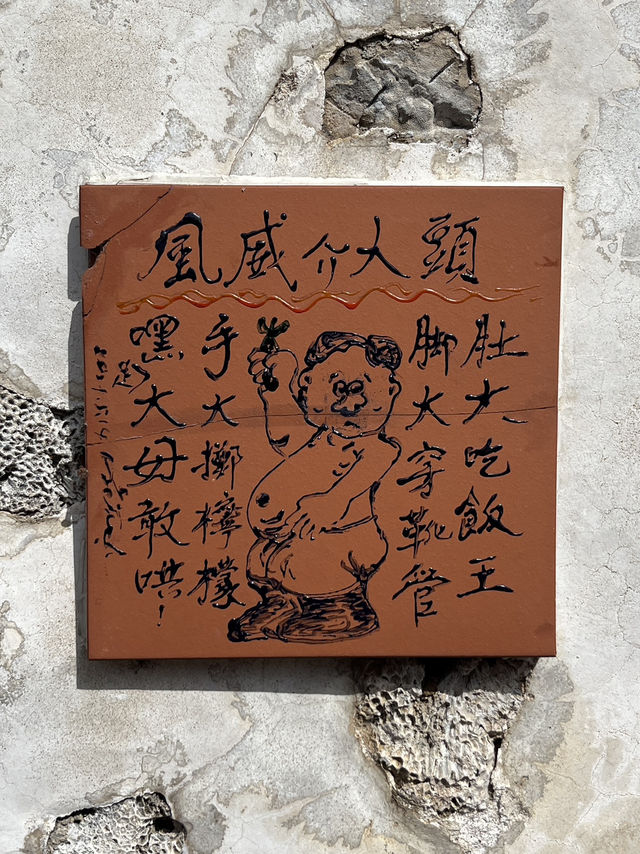 風威介大頭
肚大吃飯王
脚大穿靴管
手大擲檸檬
嘿大毋敢哄！